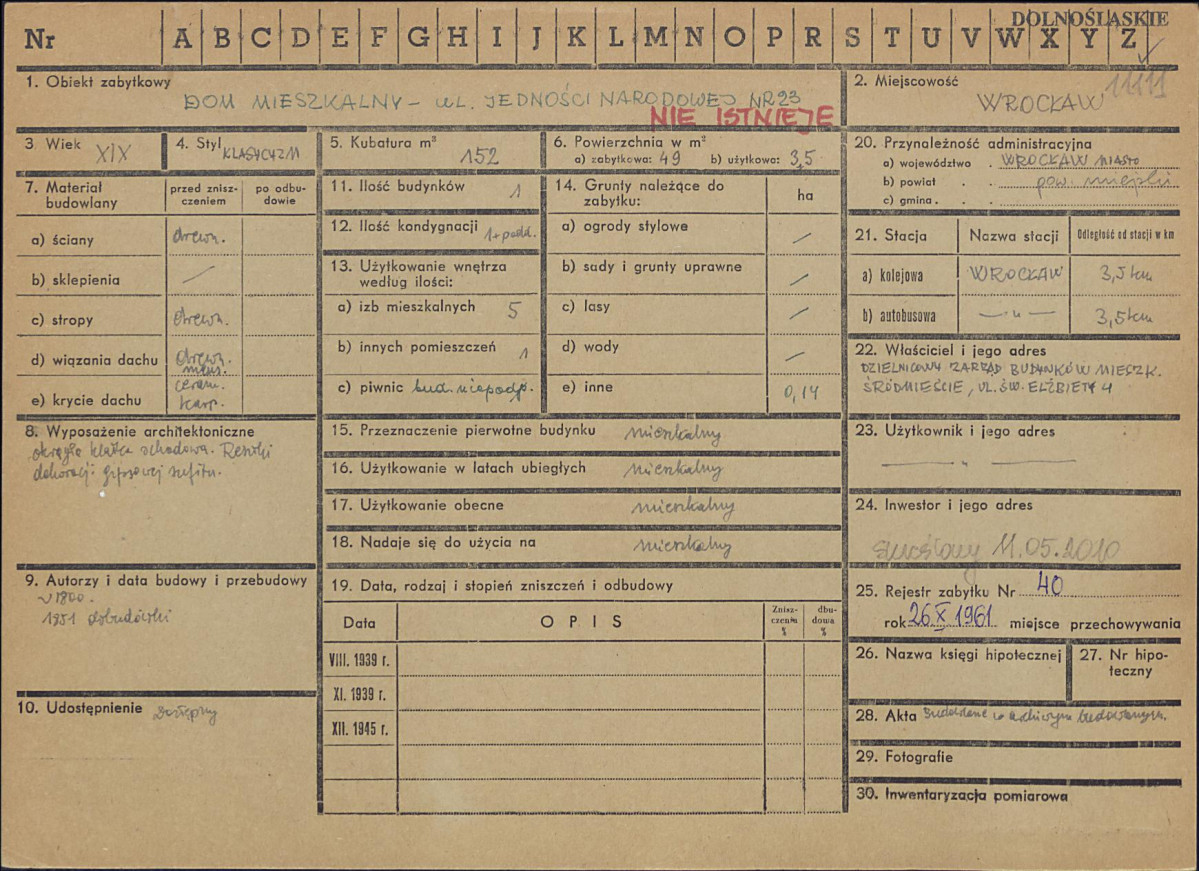 DOLNOŚLĄSKIE
Nr A B C D E F G H I J K L M N O P R S T U V W X Y Z
1. Obiekt zabytkowy
DOM MIESZKALNY – UL. JEDNOŚCI NARODOWEJ NR 23
NIE ISTNIEJE
2. Miejscowość
WROCŁAW
3. Wiek XIX
4. Styl KLASYCYZM
5. Kubatura m³
152
6. Powierzchnia w m²
a) zabytkowa: 49 b) użytkowa: 3,5
7. Materiał budowlany
przed znisz-
czeniem
po odbu-
dowie
a) ściany drewn.
b) sklepienia —
c) stropy drewn.
d) wiązania dachu drewn.
e) krycie dachu ceram.
karp.
8. Wyposażenie architektoniczne
okrągła klatka schodowa. Resztki
dekoracji gipsowej sufitu.
9. Autorzy i data budowy i przebudowy
~ 1800.
1951 dobudówki
10. Udostępnienie Dostępny
11. Ilość budynków 1
12. Ilość kondygnacji 1+podd.
13. Użytkowanie wnętrza
według ilości:
a) izb mieszkalnych 5
b) innych pomieszczeń 1
c) piwnic bud. niepodp.
14. Grunty należące do
zabytku:
ha
a) ogrody stylowe —
b) sady i grunty uprawne —
c) lasy —
d) wody —
e) inne 0,14
15. Przeznaczenie pierwotne budynku mieszkalny
16. Użytkowanie w latach ubiegłych mieszkalny
17. Użytkowanie obecne mieszkalny
18. Nadaje się do użycia na mieszkalny
19. Data, rodzaj i stopień zniszczeń i odbudowy
Data OPIS
Znisz-
czenia
%
dbu-
dowa
%
VIII. 1939 r.
XI. 1939 r.
XII. 1945 r.
20. Przynależność administracyjna
a) województwo . WROCŁAW MIASTO
b) powiat . . pow. miejski
c) gmina . . .
21. Stacja Nazwa stacji Odległość od stacji w km
a) kolejowa WROCŁAW 3,5 km
b) autobusowa —„— 3,5 km
22. Właściciel i jego adres
DZIELNICOWY ZARZĄD BUDYNKÓW MIESZK.
ŚRÓDMIEŚCIE, UL. ŚW. ELŻBIETY 4
23. Użytkownik i jego adres
—„—
24. Inwestor i jego adres
skreślony 11.05.2010
25. Rejestr zabytku Nr 40
rok 26 X 1961 miejsce przechowywania
26. Nazwa księgi hipotecznej
27. Nr hipo-
teczny
28. Akta budowlane w archiwum budowlanym.
29. Fotografie
30. Inwentaryzacja pomiarowa